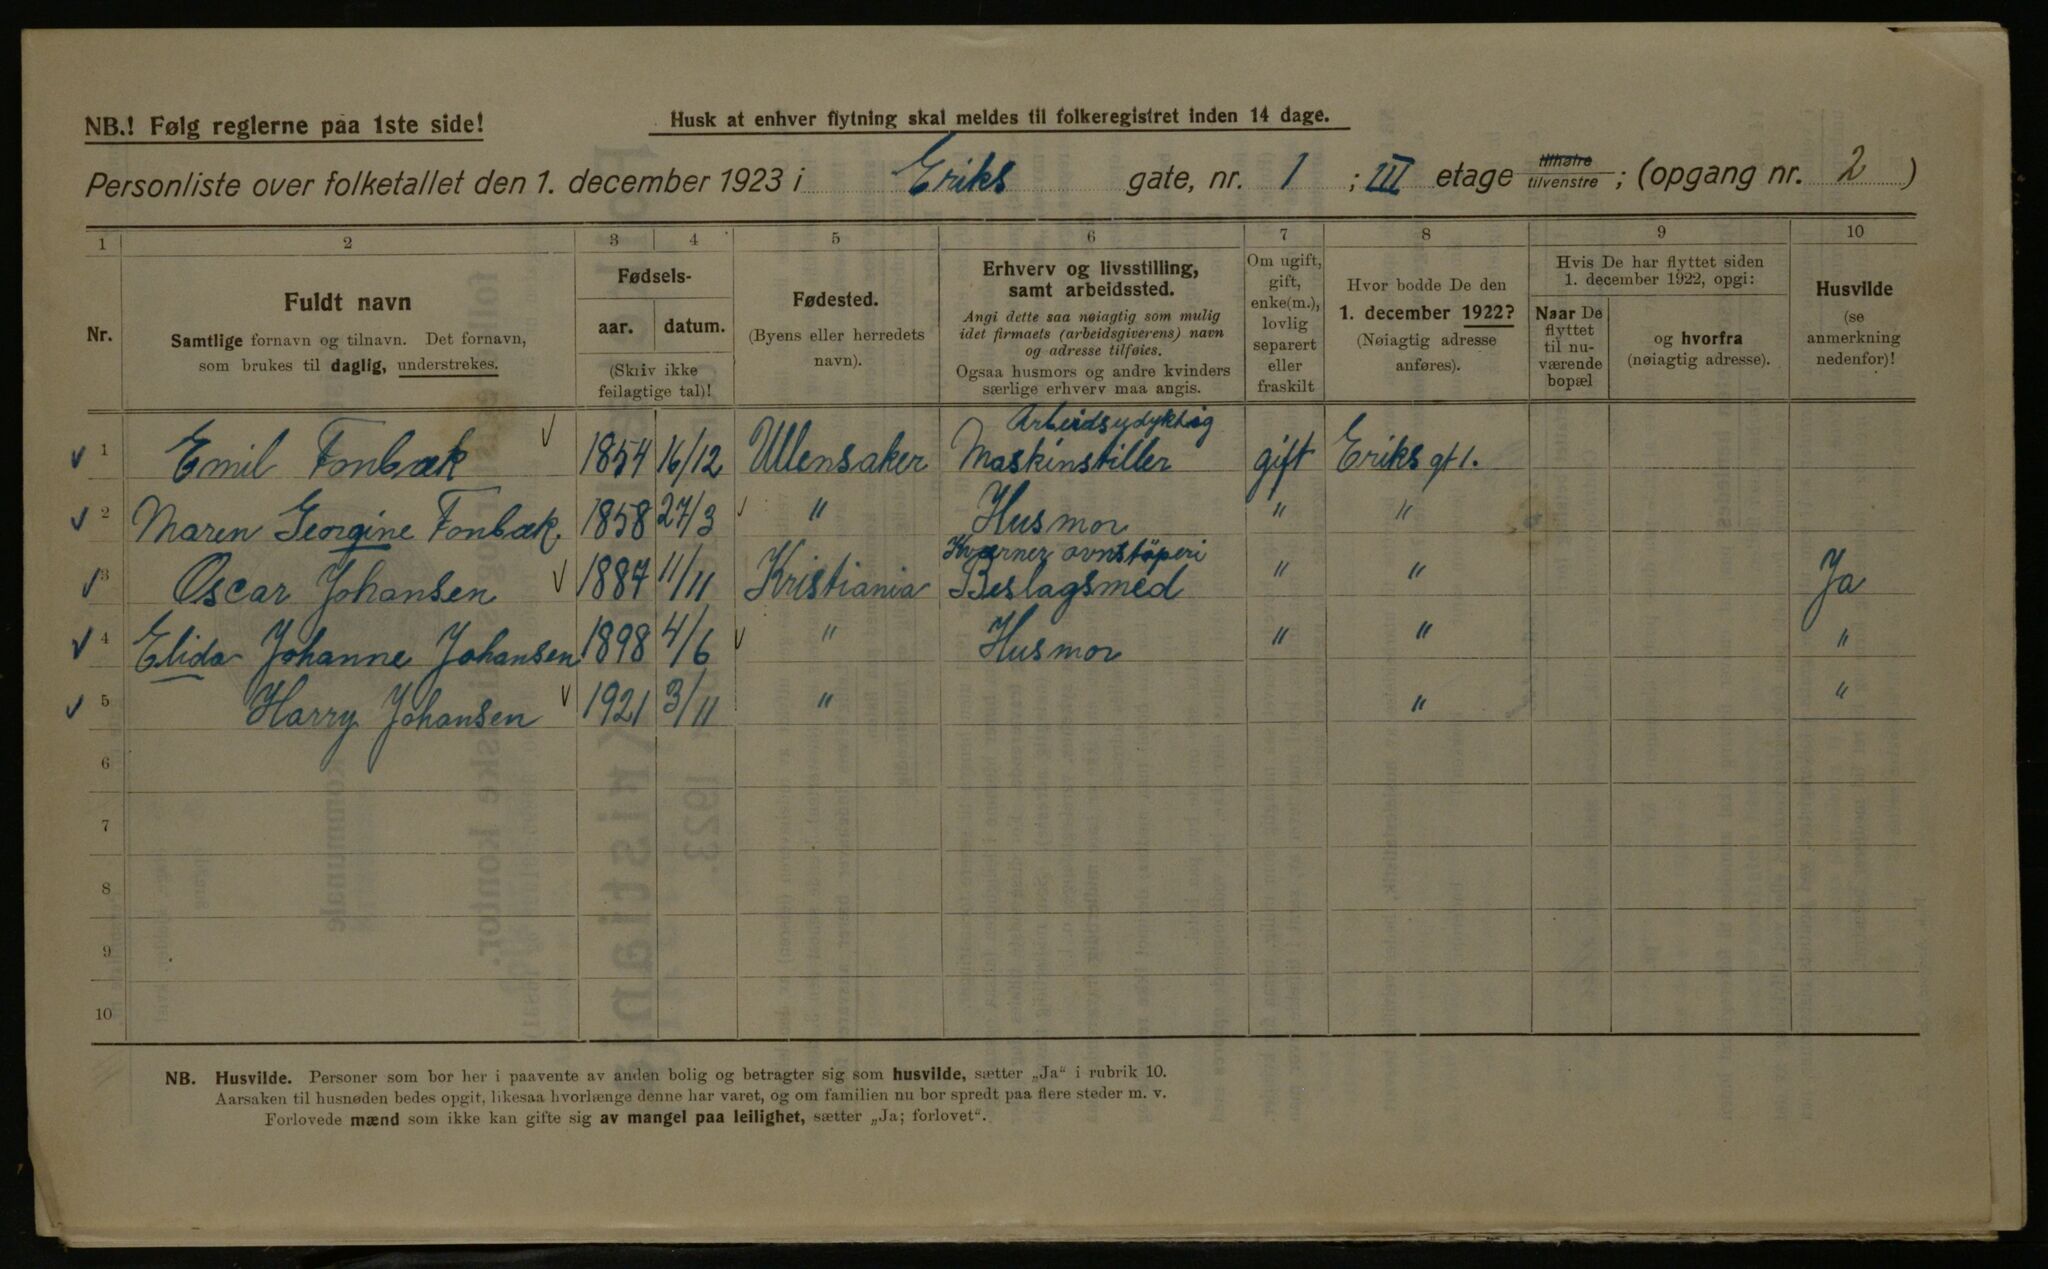 NB.! Følg reglerne paa 1ste side!
Husk at enhver flytning skal meldes til folkeregistret inden 14 dage.
Personliste over folketallet den 1. december 1923 i Eriks gate, nr. 1 ; III etage tilhøire tilvenstre ; (opgang nr. 2 )
1 2 3 4 5 6 7 8 9 10
Nr.
Fuldt navn
Samtlige fornavn og tilnavn. Det fornavn,
som brukes til daglig, understrekes.
Fødsels-
aar. datum.
(Skriv ikke
feilagtige tal)!
Fødested.
(Byens eller herredets
navn).
Erhverv og livsstilling,
samt arbeidssted.
Angi dette saa nøiagtig som mulig
idet firmaets (arbeidsgiverens) navn
og adresse tilføies.
Ogsaa husmors og andre kvinders
særlige erhverv maa angis.
Om ugift,
gift,
enke(m.),
lovlig
separert
eller
fraskilt
Hvor bodde De den
1. december 1922?
(Nøiagtig adresse
anføres).
Hvis De har flyttet siden
1. december 1922, opgi:
Naar De
flyttet
til nu-
værende
bopæl
og hvorfra
(nøiagtig adresse).
Husvilde
(se
anmerkning
nedenfor)!
Arbeidsydyktig
1 Emil Fonbæk 1854 16/12 Ullensaker Maskinstiller gift Eriks gt 1.
2 Maren Georgine Fonbæk. 1858 27/3 " Husmor " "
Kværner ovnstöperi
3 Oscar Johansen 1887 11/11 Kristiania Beslagsmed " " Ja
4 Elida Johanne Johansen 1898 4/6 " Husmor " " "
5 Harry Johansen 1921 3/11 " " "
6
7
8
9
10
NB. Husvilde. Personer som bor her i paavente av anden bolig og betragter sig som husvilde, sætter „Ja" i rubrik 10.
Aarsaken til husnøden bedes opgit, likesaa hvorlænge denne har varet, og om familien nu bor spredt paa flere steder m. v.
Forlovede mænd som ikke kan gifte sig av mangel paa leilighet, sætter „Ja; forlovet".